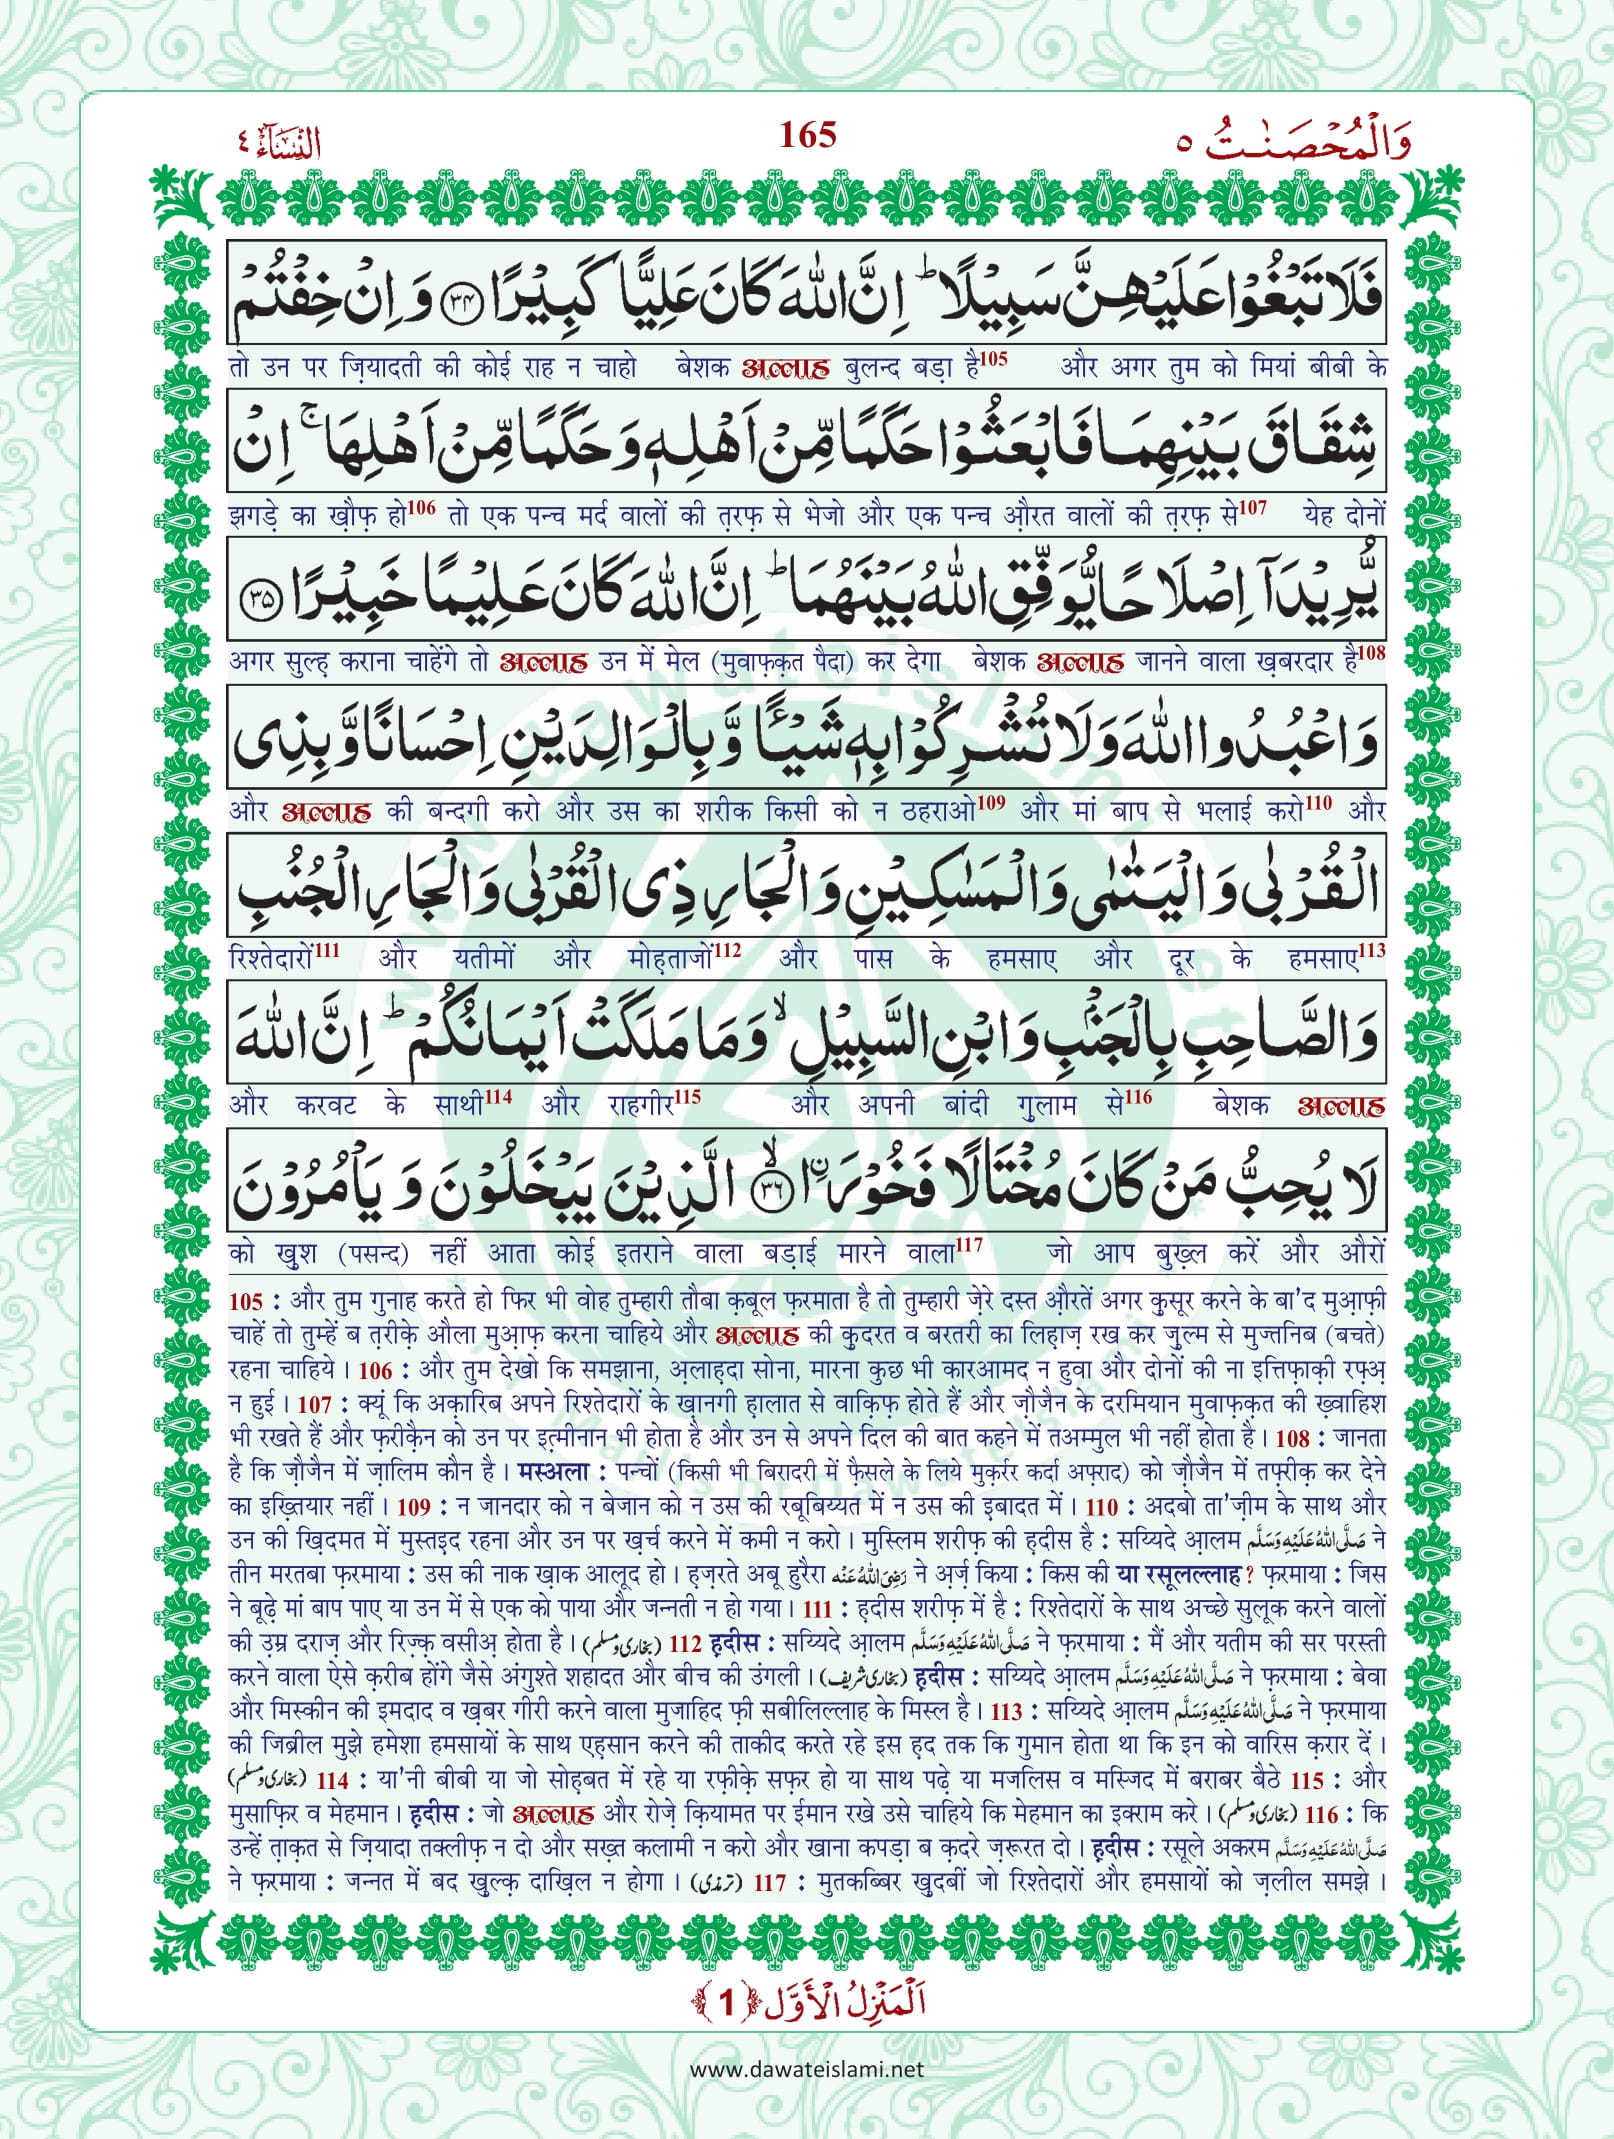 وَالْمُحْصَنٰتُ ٥ 165 النِّسَآءُ ٤
فَلَا تَبْغُوْا عَلَيْهِنَّ سَبِيْلًا ؕ اِنَّ اللّٰهَ كَانَ عَلِيًّا كَبِيْرًا ﴿۳۴﴾ وَ اِنْ خِفْتُمْ
तो उन पर ज़ियादती की कोई राह न चाहो बेशक अल्लाह बुलन्द बड़ा है105 और अगर तुम को मियां बीबी के
شِقَاقَ بَيْنِهِمَا فَابْعَثُوْا حَكَمًا مِّنْ اَهْلِهٖ وَ حَكَمًا مِّنْ اَهْلِهَا ۚ اِنْ
झगड़े का ख़ौफ़ हो106 तो एक पन्च मर्द वालों की त़रफ़ से भेजो और एक पन्च औ़रत वालों की त़रफ़ से107 येह दोनों
يُّرِيْدَاۤ اِصْلَاحًا يُّوَفِّقِ اللّٰهُ بَيْنَهُمَا ؕ اِنَّ اللّٰهَ كَانَ عَلِيْمًا خَبِيْرًا ﴿۳۵﴾
अगर सुल्ह़ कराना चाहेंगे तो अल्लाह उन में मेल (मुवाफ़क़त पैदा) कर देगा बेशक अल्लाह जानने वाला ख़बरदार है108
وَ اعْبُدُوا اللّٰهَ وَ لَا تُشْرِكُوْا بِهٖ شَيْـًٔا وَّ بِالْوَالِدَيْنِ اِحْسَانًا وَّ بِذِی
और अल्लाह की बन्दगी करो और उस का शरीक किसी को न ठहराओ109 और मां बाप से भलाई करो110 और
الْقُرْبٰى وَ الْيَتٰمٰى وَ الْمَسٰكِيْنِ وَ الْجَارِ ذِی الْقُرْبٰى وَ الْجَارِ الْجُنُبِ
रिश्तेदारों111 और यतीमों और मोह़ताजों112 और पास के हमसाए और दूर के हमसाए113
وَ الصَّاحِبِ بِالْجَنْۢبِ وَ ابْنِ السَّبِيْلِ ۙ وَ مَا مَلَكَتْ اَيْمَانُكُمْ ؕ اِنَّ اللّٰهَ
और करवट के साथी114 और राहगीर115 और अपनी बांदी ग़ुलाम से116 बेशक अल्लाह
لَا يُحِبُّ مَنْ كَانَ مُخْتَالًا فَخُوْرَا ۙ﴿۳۶﴾ ۨالَّذِيْنَ يَبْخَلُوْنَ وَ يَاْمُرُوْنَ
को ख़ुश (पसन्द) नहीं आता कोई इतराने वाला बड़ाई मारने वाला117 जो आप बुख़्ल करें और औरों
105 : और तुम गुनाह करते हो फिर भी वोह तुम्हारी तौबा क़बूल फ़रमाता है तो तुम्हारी ज़ेरे दस्त औ़रतें अगर क़ुसूर करने के बा'द मुआ़फ़ी
चाहें तो तुम्हें ब त़रीक़े औला मुआ़फ़ करना चाहिये और अल्लाह की क़ुदरत व बरतरी का लिह़ाज़ रख कर ज़ुल्म से मुज्तनिब (बचते)
रहना चाहिये । 106 : और तुम देखो कि समझाना, अ़लाह़दा सोना, मारना कुछ भी कारआमद न हुवा और दोनों की ना इत्तिफ़ाक़ी रफ़्अ़
न हुई । 107 : क्यूं कि अक़ारिब अपने रिश्तेदारों के ख़ानगी ह़ालात से वाक़िफ़ होते हैं और ज़ौजैन के दरमियान मुवाफ़क़त की ख़्वाहिश
भी रखते हैं और फ़रीक़ैन को उन पर इत़्मीनान भी होता है और उन से अपने दिल की बात कहने में तअम्मुल भी नहीं होता है । 108 : जानता
है कि ज़ौजैन में ज़ालिम कौन है । मस्अला : पन्चों (किसी भी बिरादरी में फ़ैसले के लिये मुक़र्रर कर्दा अफ़्राद) को ज़ौजैन में तफ़्रीक़ कर देने
का इख़्तियार नहीं । 109 : न जानदार को न बेजान को न उस की रबूबिय्यत में न उस की इ़बादत में । 110 : अदबो ता'ज़ीम के साथ और
उन की ख़िदमत में मुस्तइ़द रहना और उन पर ख़र्च करने में कमी न करो । मुस्लिम शरीफ़ की ह़दीस है : सय्यिदे आ़लम صَلَّی اللّٰهُ عَلَيْهِ وَسَلَّم ने
तीन मरतबा फ़रमाया : उस की नाक ख़ाक आलूद हो । ह़ज़रते अबू हुरैरा رَضِیَ اللّٰهُ عَنْهُ ने अ़र्ज़ किया : किस की या रसूलल्लाह? फ़रमाया : जिस
ने बूढ़े मां बाप पाए या उन में से एक को पाया और जन्नती न हो गया । 111 : ह़दीस शरीफ़ में है : रिश्तेदारों के साथ अच्छे सुलूक करने वालों
की उ़म्र दराज़ और रिज़्क़ वसीअ़ होता है । (بخاری ومسلم) 112 ह़दीस : सय्यिदे आ़लम صَلَّی اللّٰهُ عَلَيْهِ وَسَلَّم ने फ़रमाया : मैं और यतीम की सर परस्ती
करने वाला ऐसे क़रीब होंगे जैसे अंगुश्ते शहादत और बीच की उंगली । (بخاری شریف) ह़दीस : सय्यिदे आ़लम صَلَّی اللّٰهُ عَلَيْهِ وَسَلَّم ने फ़रमाया : बेवा
और मिस्कीन की इमदाद व ख़बर गीरी करने वाला मुजाहिद फ़ी सबीलिल्लाह के मिस्ल है । 113 : सय्यिदे आ़लम صَلَّی اللّٰهُ عَلَيْهِ وَسَلَّم ने फ़रमाया
की जिब्रील मुझे हमेशा हमसायों के साथ एह़सान करने की ताकीद करते रहे इस ह़द तक कि गुमान होता था कि इन को वारिस क़रार दें ।
(بخاری ومسلم) 114 : या'नी बीबी या जो सोह़बत में रहे या रफ़ीक़े सफ़र हो या साथ पढ़े या मजलिस व मस्जिद में बराबर बैठे 115 : और
मुसाफ़िर व मेहमान । ह़दीस : जो अल्लाह और रोज़े क़ियामत पर ईमान रखे उसे चाहिये कि मेहमान का इक्राम करे । (بخاری ومسلم) 116 : कि
उन्हें त़ाक़त से ज़ियादा तक्लीफ़ न दो और सख़्त कलामी न करो और खाना कपड़ा ब क़दरे ज़रूरत दो । ह़दीस : रसूले अकरम صَلَّی اللّٰهُ عَلَيْهِ وَسَلَّم
ने फ़रमाया : जन्नत में बद ख़ुल्क़ दाख़िल न होगा । (ترمذی) 117 : मुतकब्बिर ख़ुदबीं जो रिश्तेदारों और हमसायों को ज़लील समझे ।
اَلْمَنْزِلُ الْاَوَّل ﴿1﴾
www.dawateislami.net